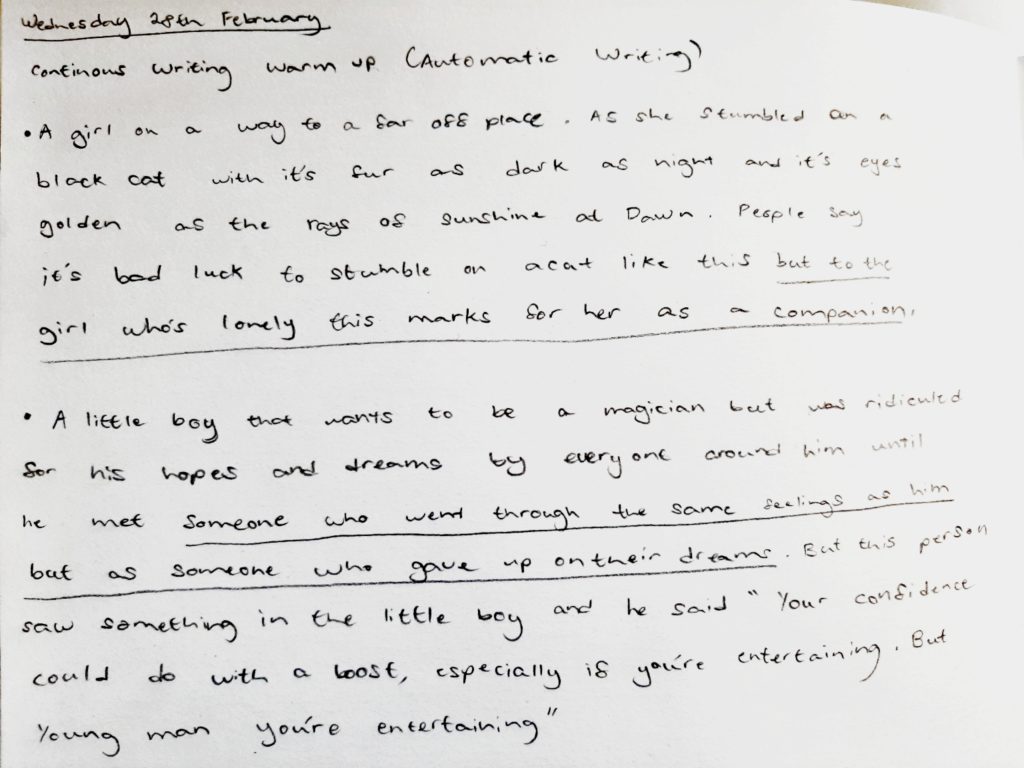 Wednesday 28th February
Continous Writing Warm up (Automatic Writing)
• A girl on a way to a far off place. As she stumbled on a
black cat with it's fur as dark as night and it's eyes
golden as the rays of sunshine at Dawn. People say
it's bad luck to stumble on a cat like this but to the
girl who's lonely this marks for her as a companion.
• A little boy that wants to be a magician but was ridiculed
for his hopes and dreams by everyone around him until
he met someone who went through the same feelings as him
but as someone who gave up on their dreams. But this person
saw something in the little boy and he said "Your confidence
could do with a boost, especially if you're entertaining. But
Young man you're entertaining"